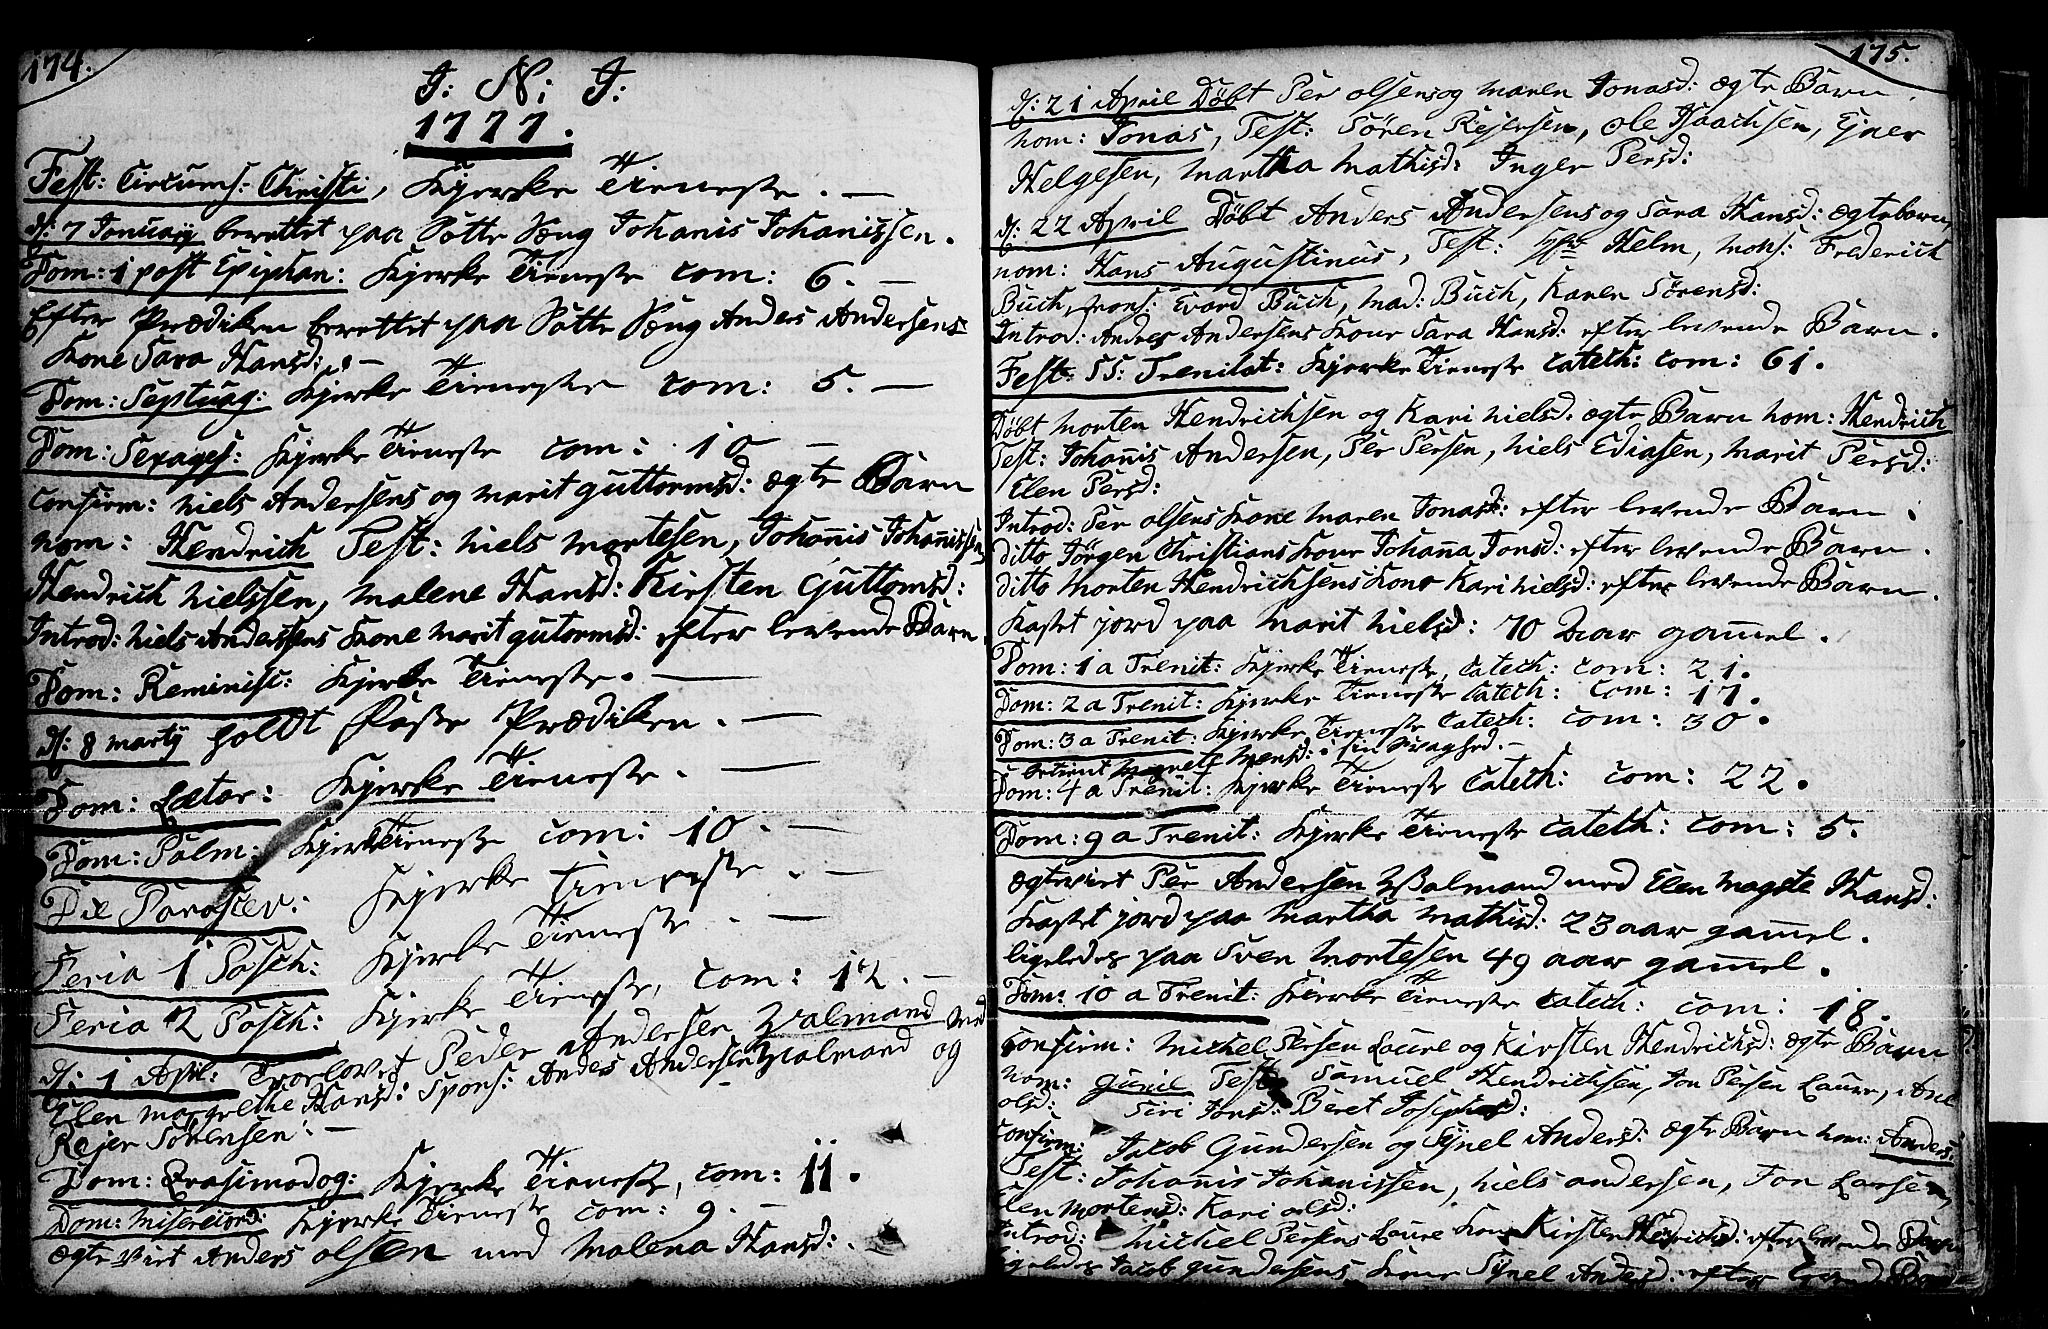 174.
J: N: J:
1777.
Fest: Circums: Christi, Kjerke Tieneste. —
d: 7 Januarij berettet paa Sotte Seng Johanis Johanissen.
Dom: 1 post Epiphan: Kjerke Tieneste com: 6. —
Efter Prædiken berettet paa Sotte Seng Anders Andersens
Kone Sara Hansd: . —
Dom: Septuag: Kjerke Tieneste com: 5. —
Dom: Sexages: Kjerke Tieneste com: 10 —
Confirm: Niels Andersens og Marit Guttormsd: ægte Barn
nom: Hendrich Test: Niels Mortesen, Johañis Johañissen,
Hendrich Nielssen, Malene Hansd: Kirsten Guttomsd:
Introd: Niels Anderssens Kone Marit Gutormsd: efter levende Barn.
Dom: Reminisc: Kjerke Tieneste. —
d: 8 Martij holdt Passe Prædiken. —
Dom: Lætar: Kjerke Tieneste. —
Dom: Palm: Kjerke Tieneste com: 10. —
Die Parascev: Kjerke Tieneste. —
Feria 1 Pasch: Kjerke Tieneste. —
Feria 2 Pasch: Kjerke Tieneste, com: 12. —
d: 1 April: Troelovet Peder Andersen Walmand med
Elen Margrethe Hansd: Spons: Anders Andersen Walmand og
Rejer Sørensen: —
Dom: Qvasimodog: Kjerke Tieneste, com: 11.
Dom: Misericord: Kjerke Tieneste com: 9. —
ægte viet Anders Olsen med Malena Hansd: . —
175.
d: 21 April Døbt Per Olsens og Maren Jonasd: ægte Barn.
nom: Jonas, Test: Søren Rejersen, Ole Isaachsen, Ejner
Helgesen, Martha Mathisd: Inger Persd:
d: 22 April Døbt Anders Andersens og Sara Hansd: ægte barn,
nom: Hans Augustinus, Test: Hr Helm, Mons: Frederich
Buch, Mons: Evard Buch, Mad: Buch, Karen Sørensd:
Introd: Andres Andersens Kone Sara Hansd: efter levende Barn.
Fest: SS: Trenitat: Kjerke Tieneste Catech: com: 61.
Døbt Morten Hendrichsen og Kari Nielsd: ægte Barn nom: Hendrich
Test: Johañis Andersen, Per Persen, Niels Ediasen, Marit Persd:
Elen Persd:
Introd: Per Olsens Kone Maren Jonasd: efter levende Barn.
ditto Jørgen Christians Kone Johaña Jonsd: efter levende Barn.
ditto Morten Hendrichsens Kone Kari Nielsd: efter levende Barn.
Kastet jord paa Marit Nielsd: 70 Aar gam̃el.
Dom: 1 a Trenit: Kjerke Tieneste, Catech: com: 21.
Dom: 2 a Trenit: Kjerke Tieneste Catech: com: 17.
Dom: 3 a Trenit: Kjerke Tieneste Catech: com: 30.
betient Hansd: i sin Svaghed. —
Dom: 4 a Trenit: Kjerke Tieneste Catech: com: 22.
Dom: 9 a Trenit: Kjerke Tieneste Catech: com: 5.
ægteviet Per Andersen Walmand med Elen Magrete Hansd:
Kastet jord paa Martha Mathisd: 23 aar gam̃el.
ligeledes paa Sven Mortesen 49 aar gam̃el.
Dom: 10 a Trenit: Kjerke Tieneste Catech: com: 18.
Confirm: Michel Persen Laure og Kirsten Hendrichsd: ægte Barn
nom: Gunil Test: Samuel Hendrichsen, Jon Persen Laure, Ane
Olsd: Siri Jonsd: Beret Josephsd:
Confirm: Jacob Gundersen og Synel Andersd: ægte Barn nom: Anders
Test: Johanis Johanissen, Niels Andersen, Jon Larsen,
Elen Mortensd: Kari Olsd:
Introd: Michel Persens Laure Kone Kirsten Hendrichsd: efter levende Barn
ligeledes Jacob Gundersens Kone Synel Andersd: efter levende Barn